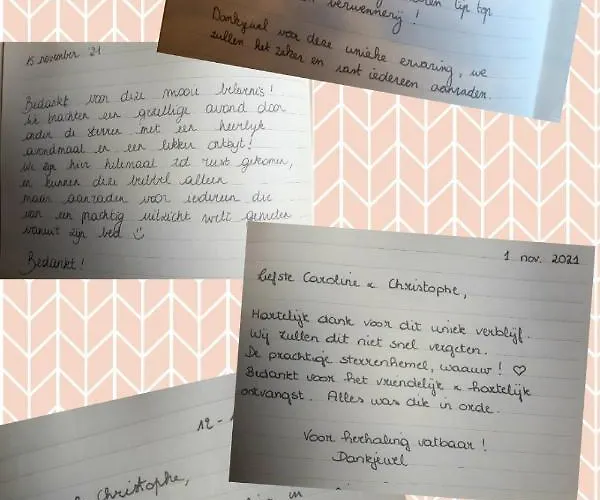 verwennerij !
Dankjewel voor deze unieke ervaring, we
zullen het zeker en vast iedereen aanraden.
15 november 21
Bedankt voor deze mooie belevnis!
We brachten een gezellige avond door
onder de sterren met een heerlijk
avondmaal en een lekker ontbijt!
We zijn hier helemaal tot rust gekomen,
en kunnen deze bubbel alleen
maar aanraden voor iedereen die
van een prachtig uitzicht wilt genieten
vanuit zijn bed ☺
Bedankt!
1 nov. 2021
Liefste Caroline & Christophe,
Hartelijk dank voor dit uniek verblijf.
Wij zullen dit niet snel vergeten.
De prachtige sterrenhemel, waauw! ♡
Bedankt voor het vriendelijk & hartelijk
ontvangst. Alles was dik in orde.
Voor herhaling vatbaar!
Dankjewel
12-1
Christophe,
in